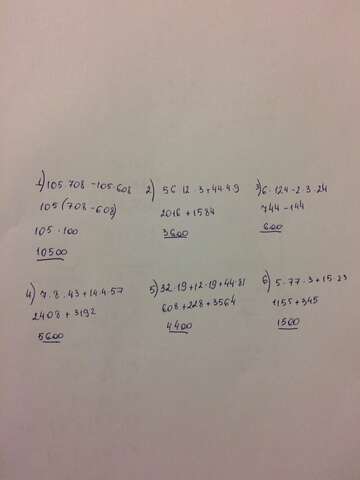 1) 105·708 - 105·608
105(708 - 608)
105·100
10500
2) 56·12·3 + 44·4·9
2016 + 1584
3600
3) 6·124 - 2·3·24
744 - 144
600
4) 7·8·43 + 14·4·57
2408 + 3192
5600
5) 32·19 + 12·19 + 44·81
608 + 228 + 3564
4400
6) 5·77·3 + 15·23
1155 + 345
1500